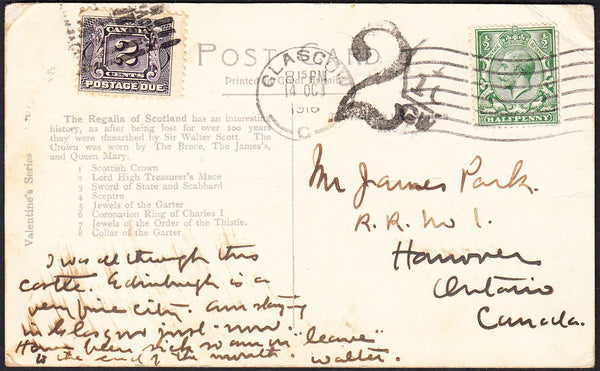 CANADA
2
CENTS
POSTAGE DUE
POST CARD.
Printed
GLASGOW
8 15 PM
14 OC
1918
C
2
HALFPENNY
The Regalia of Scotland has an interesting
history, as after being lost for over 100 years
they were unearthed by Sir Walter Scott. The
Crown was worn by The Bruce, The James's,
and Queen Mary.
1 Scottish Crown
2 Lord High Treasurer's Mace
3 Sword of State and Scabbard
4 Sceptre
5 Jewels of the Garter
6 Coronation Ring of Charles I
7 Jewels of the Order of the Thistle.
8 Collar of the Garter
Valentine's Series
I was all through this
castle. Edinburgh is a
very fine city. Am staying
in Glasgow just now.
Have been sick so am on "leave"
to the end of the month. Walter.
Mr James Park.
R.R. No 1.
Hanover
Ontario
Canada.